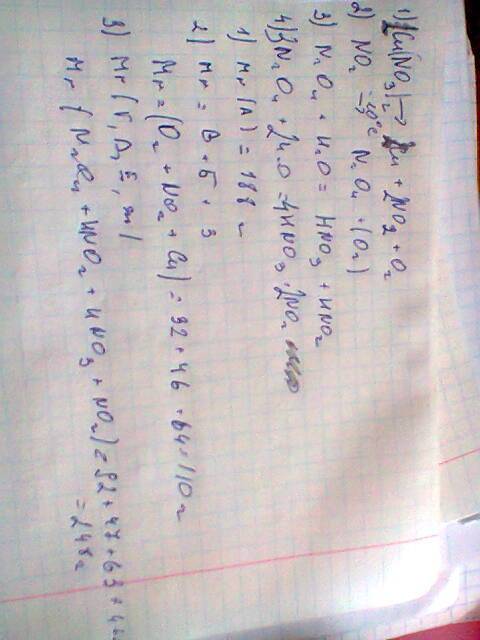 1) Cu(NO₃)₂ → Cu + 2NO₂ + O₂
2) NO₂ -10°C → N₂O₄ + (O₂)
3) N₂O₄ + H₂O = HNO₃ + HNO₂
4) 3N₂O₄ + 2H₂O = 4HNO₃ + 2NO₂
1) Mr(A) = 188 г
2) Mr = В + Б + З
Mr = (O₂ + NO₂ + Cu) = 32 + 46 + 64 = 110 г
3) Mr (Г, Д, Е, )
Mr (N₂O₄ + HNO₂ + HNO₃ + NO₂) = 92 + 47 + 63 +
= 248 г